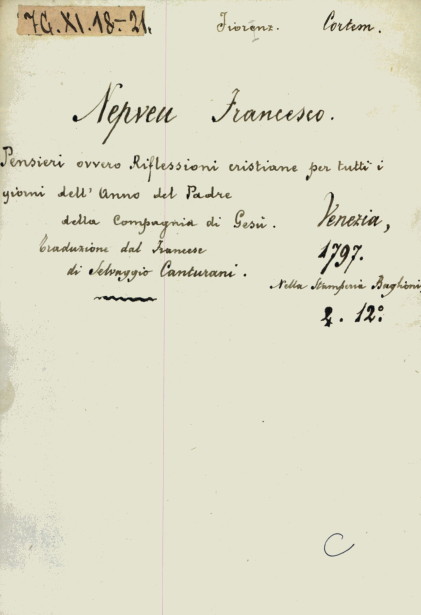 7G.XI.18-21. Fiorenz. Cortem.
Nepveu Francesco.
Pensieri ovvero Riflessioni cristiane per tutti i
giorni dell' Anno del Padre
della Compagnia di Gesù. Venezia,
traduzione dal Francese 1797.
di Selvaggio Canturani. Nella Stamperia Baglioni,
2. 12º
C